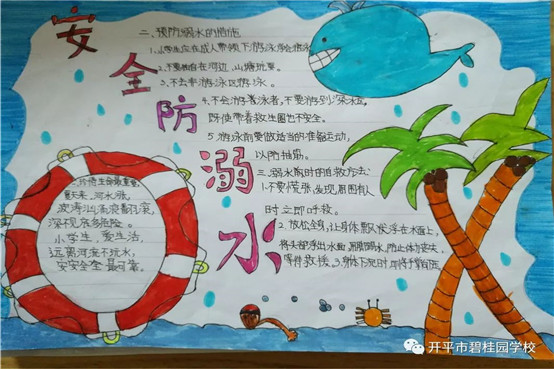 安全防溺水
二、预防溺水的措施
1.小学生应在成人带领下游泳
2.不要独自在河边、山塘玩耍。
3.不去非游泳区游泳。
4.不会游泳者,不要游到深水区
既使带着救生圈也不安全。
5.游泳前要做适当的准备运动,
以防抽筋。
三.溺水时的自救方法
1.不要慌张,发现周围有人
时立即呼救。
2.放松全身,让身体飘浮在水面上,
将头部浮出水面
等待救援。3.身体下沉时
生命最重要,
夏天来,河水涨,
波涛汹涌
深不见底多危险。
小学生,爱生活,
远离河流不玩水,
安安全全最可靠。
开平市碧桂园学校